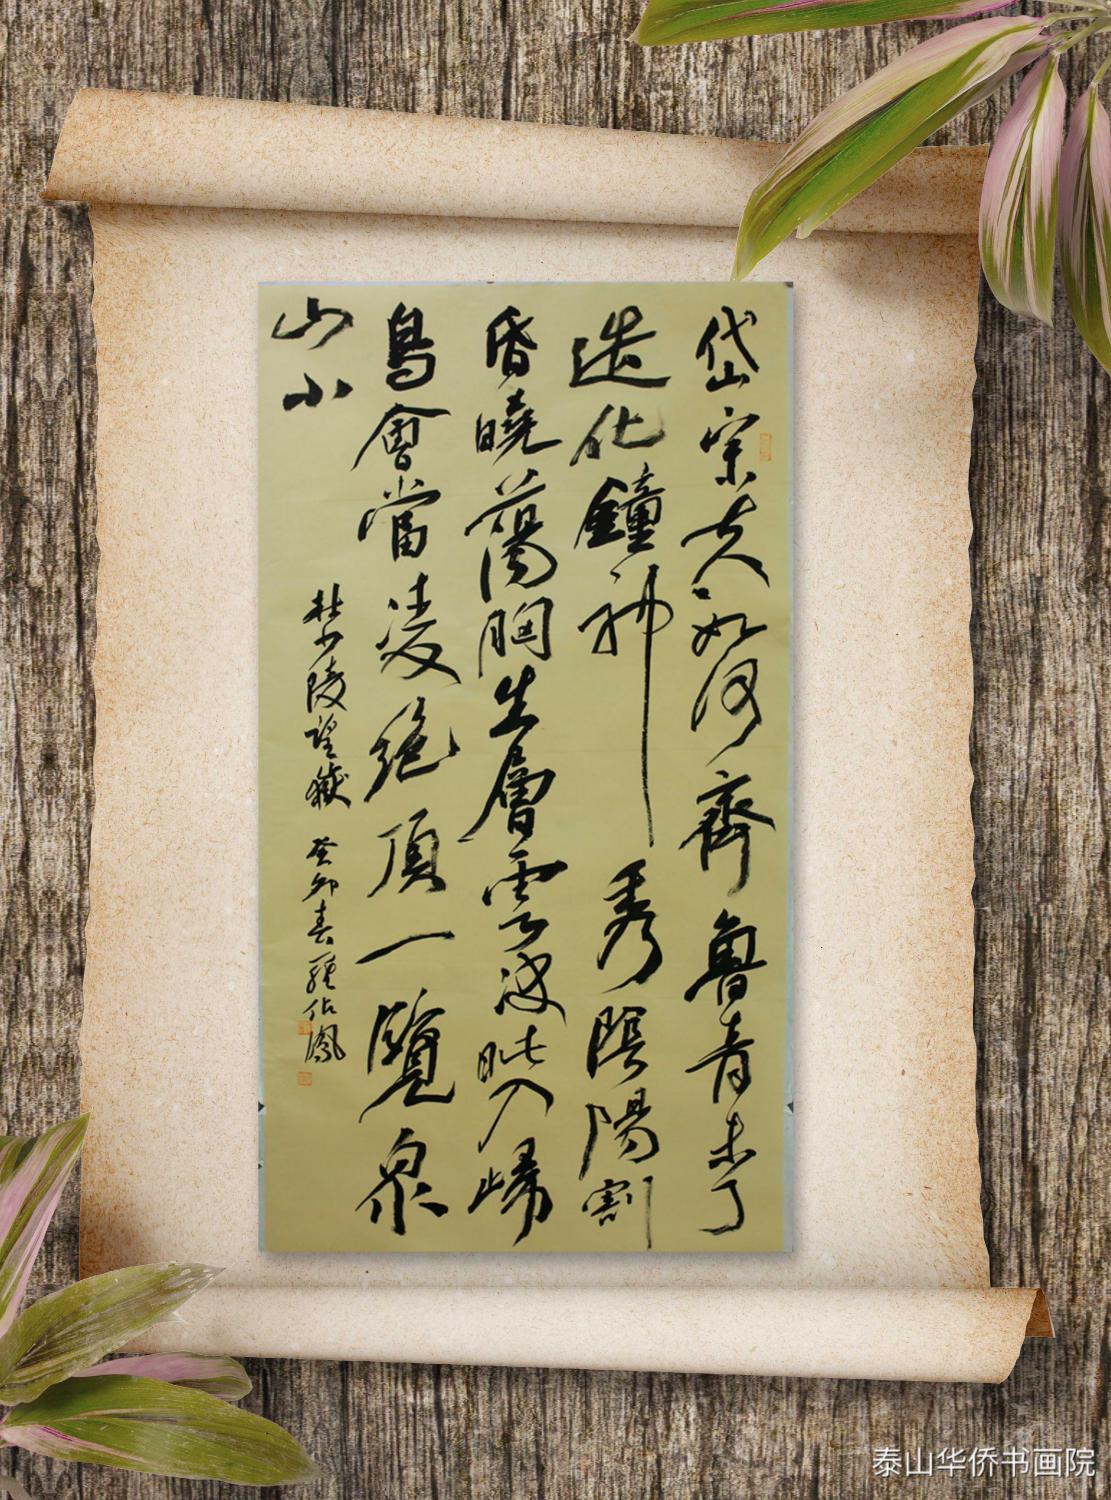 岱宗夫如何齊魯青未了
造化鐘神秀陰陽割
昏曉蕩胸生層雲決眦入歸
鳥會當凌絕頂一覽眾
山小
杜少陵望嶽 癸卯春 鳳
泰山华侨书画院